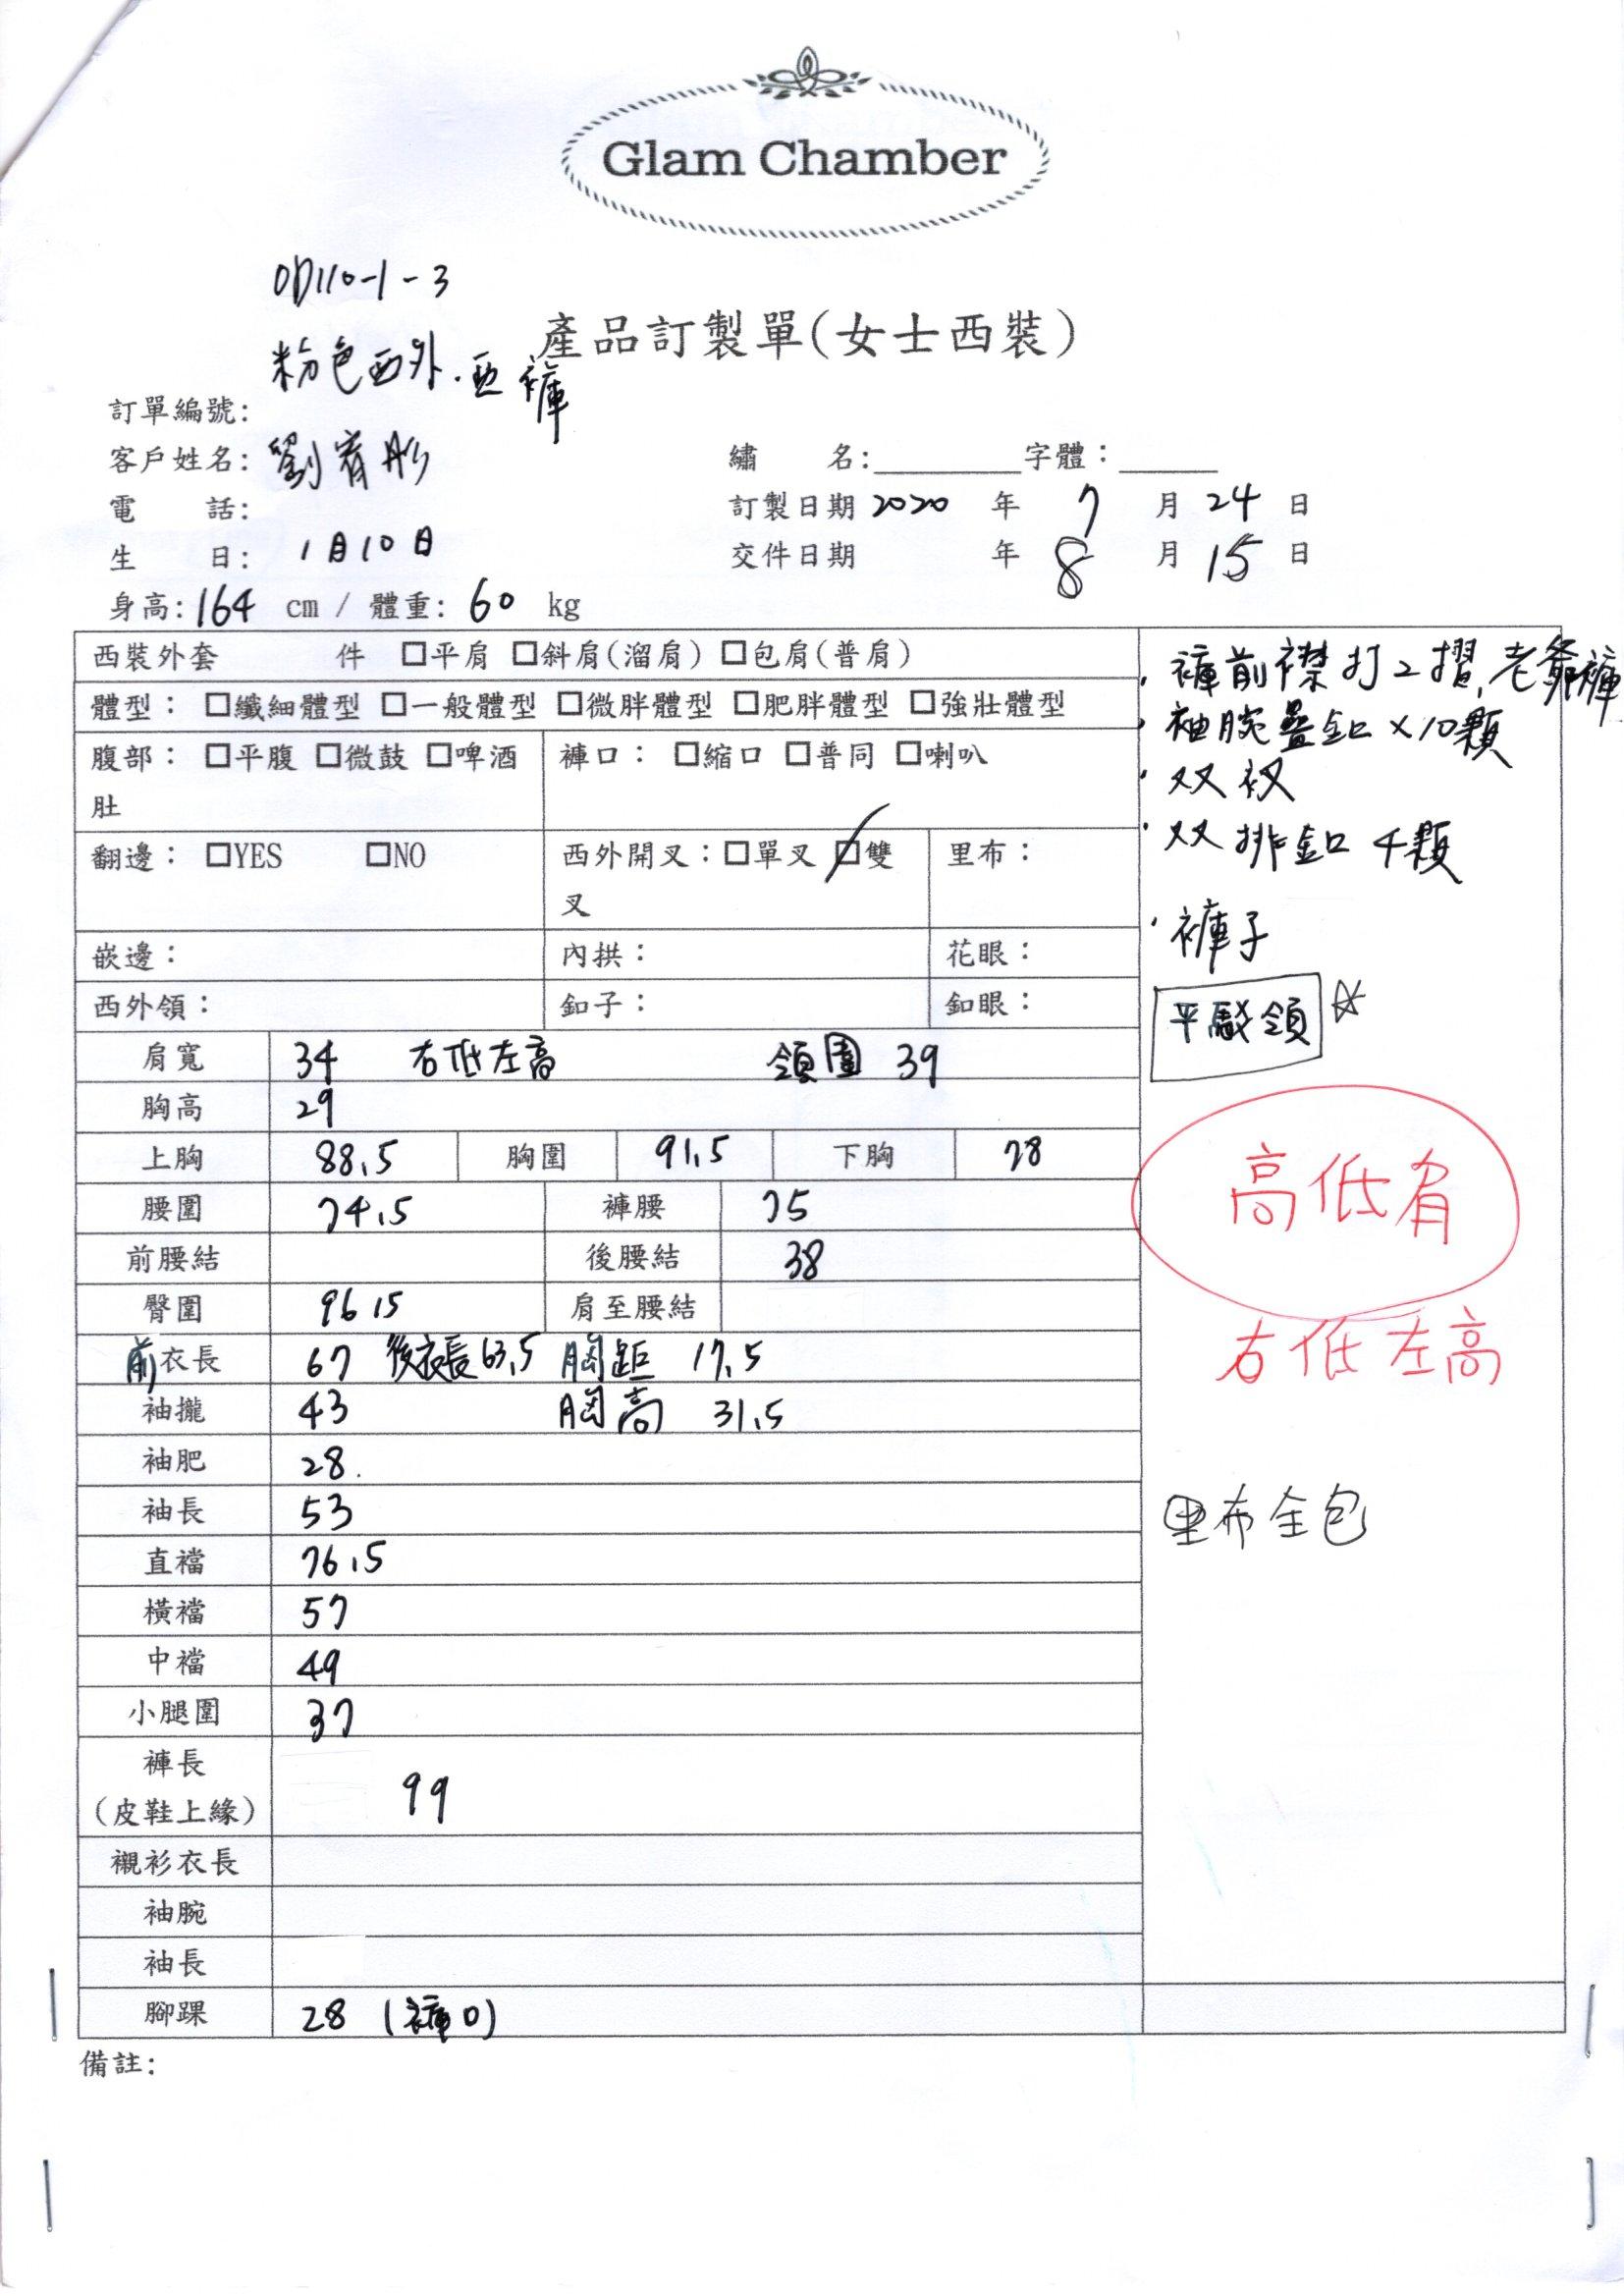 Glam Chamber
OD110-1-3
產品訂製單(女士西裝)
粉色西外.西褲
訂單編號:
客戶姓名: 劉宥彤 繡 名: 字體:
電 話: 訂製日期 2020 年 7 月 24 日
生 日: 1月10日 交件日期 年 8 月 15 日
身高: 164 cm / 體重: 60 kg
西裝外套 件 □平肩 □斜肩(溜肩) □包肩(普肩)
體型: □纖細體型 □一般體型 □微胖體型 □肥胖體型 □強壯體型
腹部: □平腹 □微鼓 □啤酒肚 褲口: □縮口 □普同 □喇叭
翻邊: □YES □NO 西外開叉: □單叉 ☑雙叉 里布:
嵌邊: 內拱: 花眼:
西外領: 釦子: 釦眼:
肩寬 34 右低左高 領圍 39
胸高 29
上胸 88.5 胸圍 91.5 下胸 78
腰圍 74.5 褲腰 75
前腰結 後腰結 38
臀圍 96.5 肩至腰結
前衣長 67 後衣長 63.5 胸距 17.5
袖攏 43 胸高 31.5
袖肥 28.
袖長 53
直襠 76.5
橫襠 57
中襠 49
小腿圍 37
褲長
(皮鞋上緣) 99
襯衫衣長
袖腕
袖長
腳踝 28 (褲口)
備註:
. 褲前襟打2摺,老爺褲
. 袖腕疊釦×10顆
. 双衩
. 双排釦 4顆
. 褲子
平駁領 ☆
高低肩
右低左高
里布全包